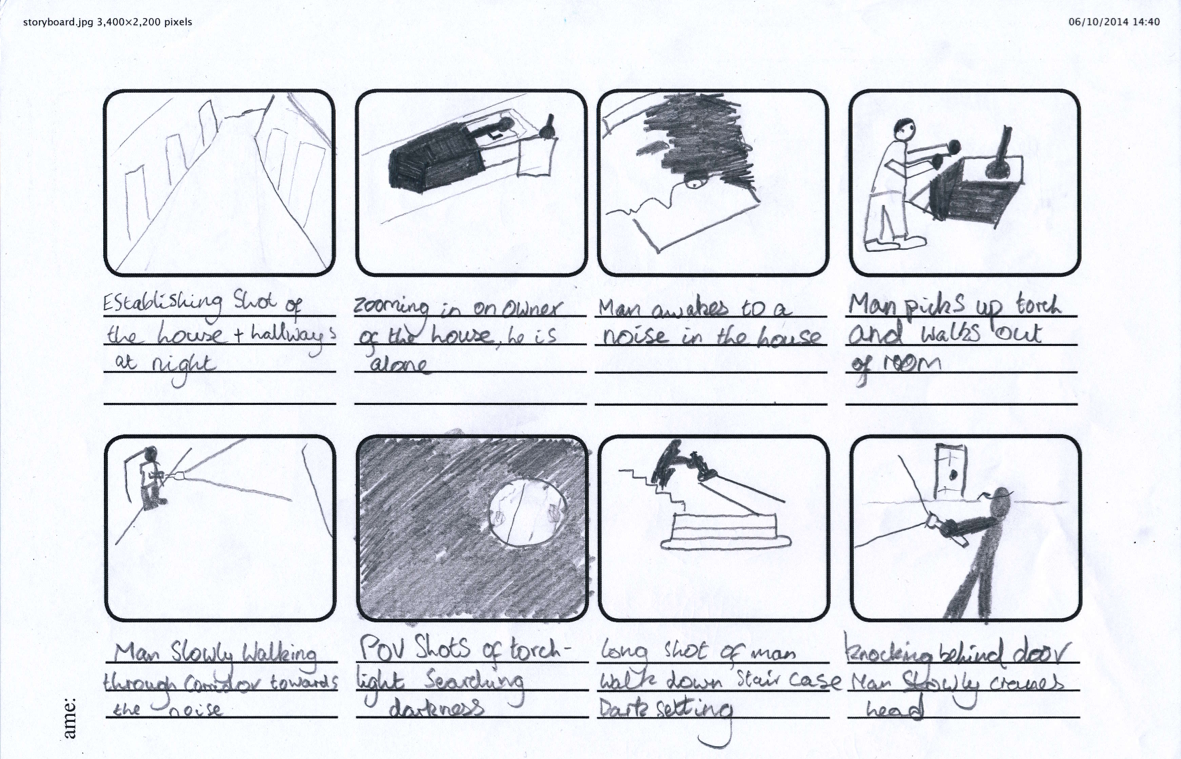 storyboard.jpg 3,400×2,200 pixels
06/10/2014 14:40
Establishing Shot of
the house + hallways
at night
zooming in on owner
of the house, he is
alone
Man awakes to a
noise in the house
Man picks up torch
and walks out
of room
Man Slowly Walking
through Corridor towards
the noise
POV Shots of torch-
light Searching
darkness
Long Shot of man
walk down Stair case
Dark setting
knocking behind door
Man Slowly cranes
head
ame: